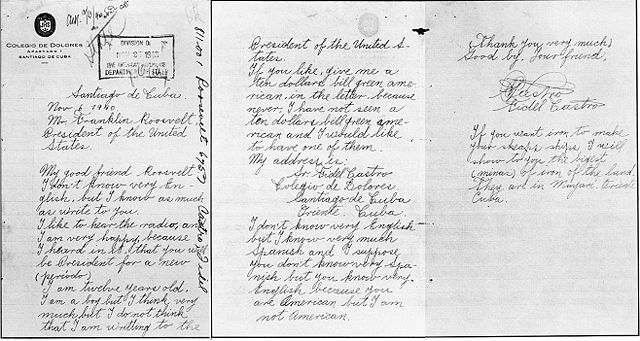 COLEGIO DE DOLORES
APARTADO 1
SANTIAGO DE CUBA
DIVISION O
1940
DEPARTMENT OF STATE
Santiago de Cuba.
Nov 6 1940
Mr. Franklin Roosevelt,
President of the United
States.
My good friend Roosvelt
I don't know very En-
glish, but I know as much
as write to you.
I like to hear the radio, and
I am very happy, because
I heard in it, that you will
be President for a new
(periodo)
I am twelve years old.
I am a boy but I think very
much but I do not think
that I am writting to the
811.001 Roosevelt 6757 Castro Fidel
President of the United S-
tates.
If you like, give me a
ten dollars bill green ame-
rican in the letter, because
never, I have not seen a
ten dollars bill green ame-
rican and I would like
to have one of them.
My address is:
Sr. Fidel Castro
Colegio de Dolores
Santiago de Cuba
Oriente. Cuba.
I don't know very English
but I know very much
Spanish and I suppose
you don't know very Spa-
nish but you know very
English because you
are American but I am
not American.
(Thank you very much)
Good by. Your friend,
Castro
Fidel Castro
If you want iron to make
your sheaps ships I will
show to you the bigest
(minas) of iron of the land.
They are in Mayarí. Oriente
Cuba.